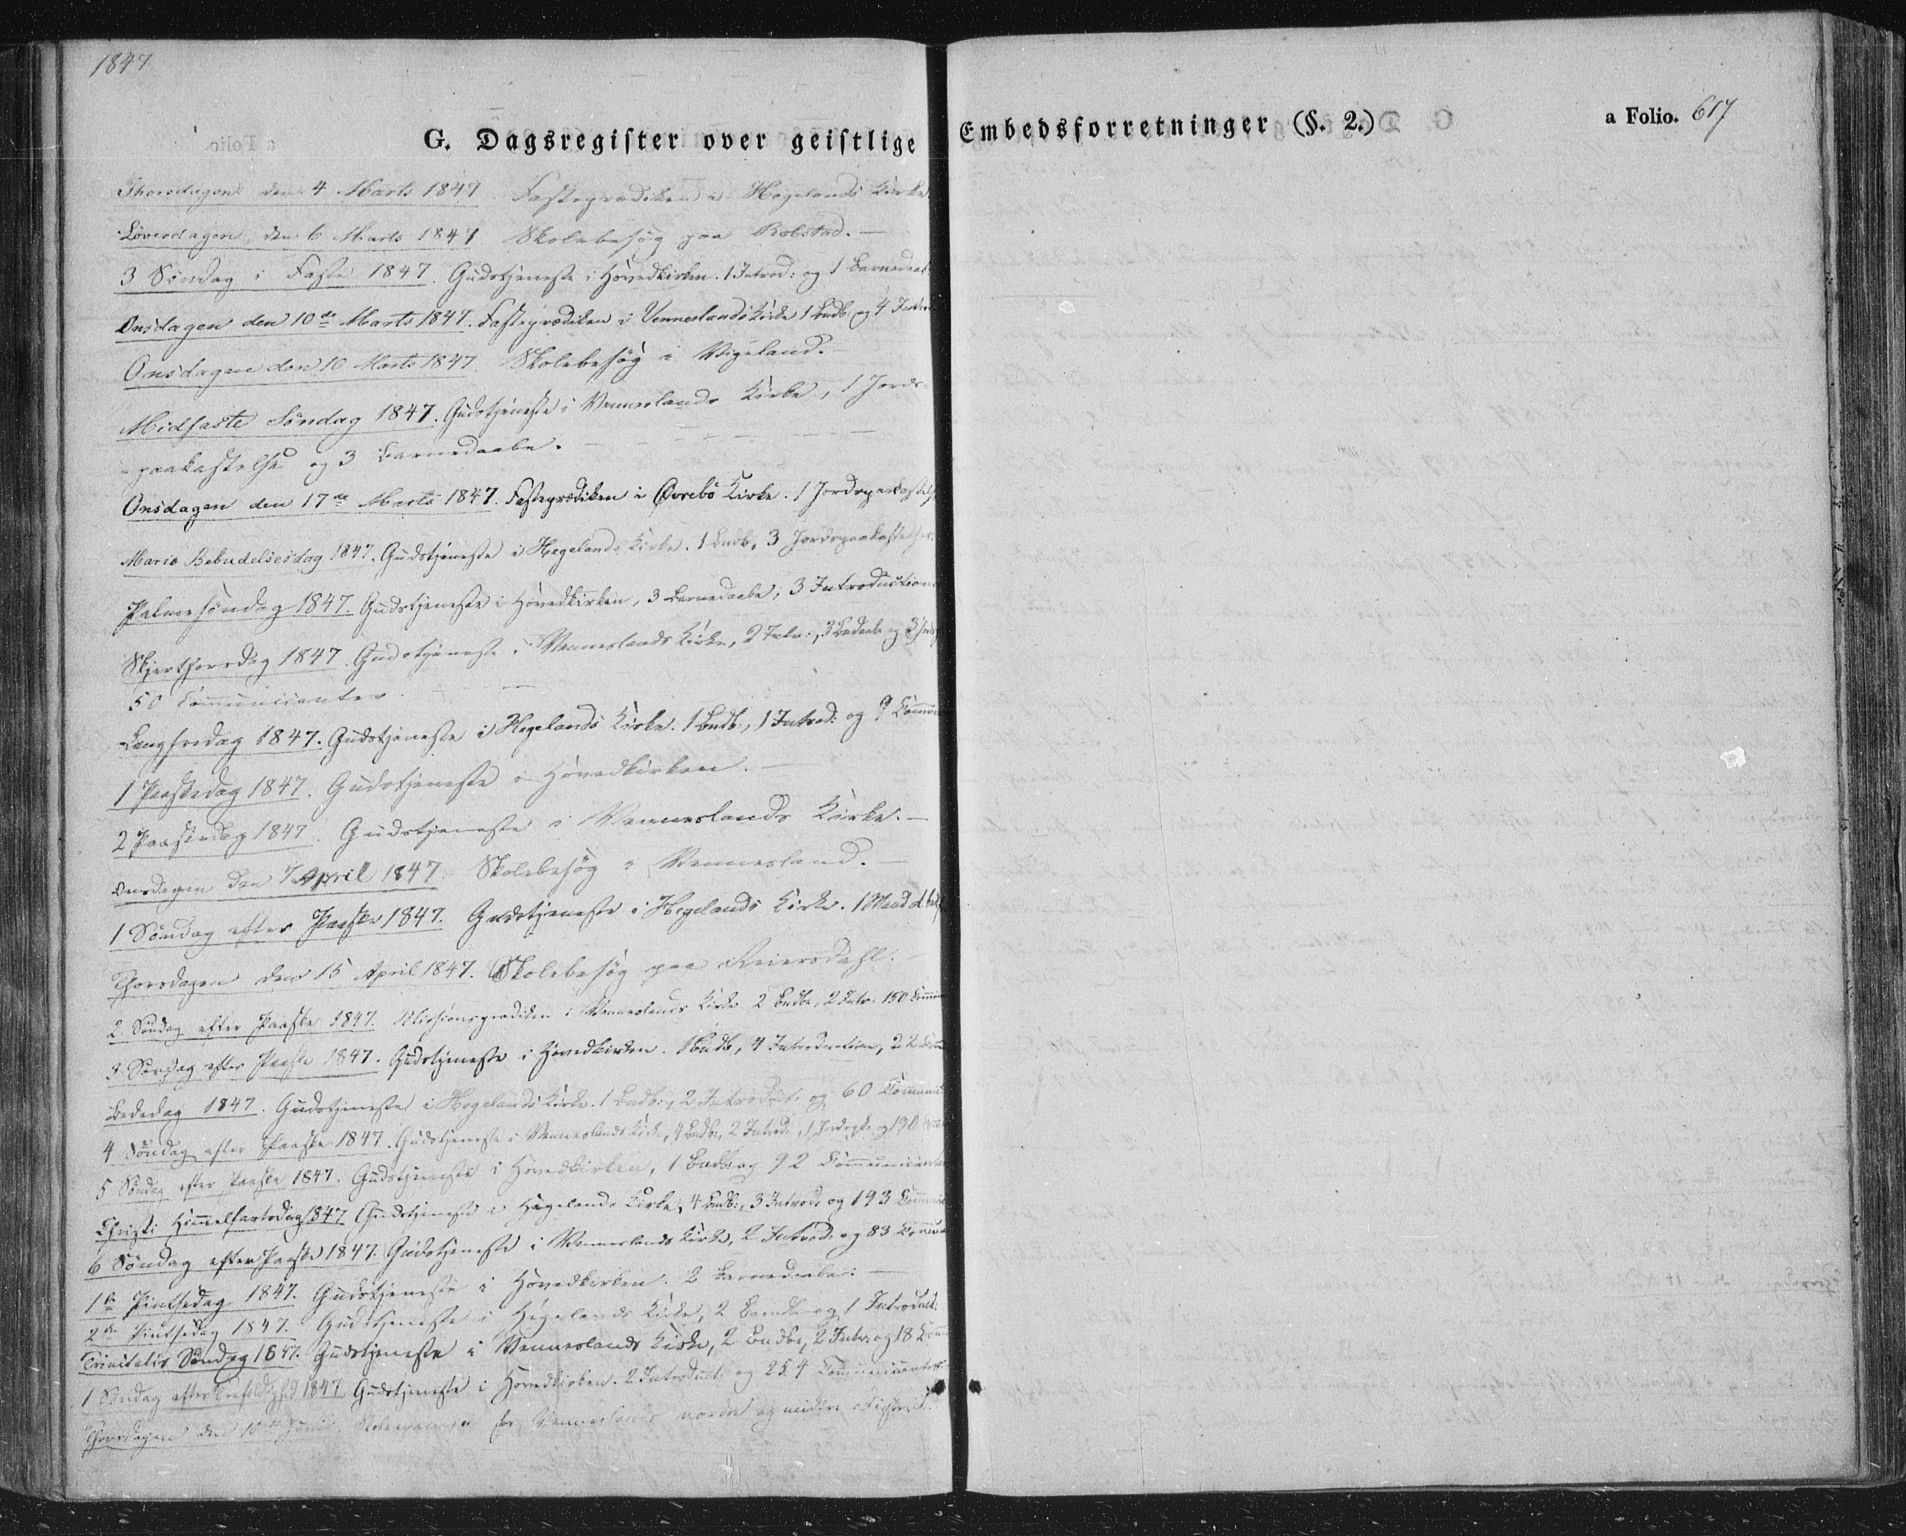 1847
G. Dagsregister over geistlige Embedsforretninger (§. 2.)
a Folio. 617
Thorsdagen den 4 Marts 1847 Fasteprædiken i Hegelands Kirke.
Løverdagen den 6 Marts 1847 Skolebesøg paa Rolstad. —
3 Søndag i Faste 1847. Gudstjeneste i Hovedkirken. 1 Introd: og 1 Barnedaab
Onsdagen den 10de Marts 1847. Fasteprædiken i Venneslands Kirke 1 Bndb og 4
Onsdagen den 10 Marts 1847. Skolebesøg i Vigeland. —
Midfaste Søndag 1847. Gudstjeneste i Venneslands Kirke, 1 Jords-
-paakastelse og 3 Barnedaabe. —
Onsdagen den 17de Marts 1847. Fasteprædiken i Øvrebö Kirke. 1 Jordspaakastelse
Mariæ Bebudelsesdag 1847. Gudstjeneste i Hegelands Kirke. 1 Bndb, 3 Jordspaakastelser.
Palmesöndag 1847. Gudstjeneste i Hovedkirken, 3 Barnedaabe, 3 Introduction
Skjerthorsdag 1847. Gudstjeneste i Venneslands Kirke, 2 Intr:, 3 og 3
50 Communicanter. —
Langfredag 1847. Gudstjeneste i Hegelands Kirke. 1 Bndb:, 1 Introd: og 9 Commu
1 Paaskedag 1847. Gudstjeneste i Hovedkirken. —
2 1847. Gudstjeneste i Venneslands Kirke. —
Onsdagen den 7 April 1847. Skolebesøg i Vennesland. —
1 Søndag efter Paaske 1847. Gudstjeneste i Hegelands Kirke. 1
Thorsdagen den 15 April 1847. Skolebesøg paa Reiersdahl.
2 Søndag efter Paaske 1847. Missionsprædiken i Venneslands Kirke 2 Bndbe, 2 Intr: 150 Commu
3 Søndag efter Paaske 1847. Gudstjeneste i Hovedkirken. Bndb, 4 Introduction, 22
Bededag 1847. Gudstjeneste i Hegelands Kirke. 1 Bndb:, 2 Introduct: og 60 Communi
4 Søndag efter Paaske 1847. Gudstjeneste i Venneslands Kirke, 4 Bndb:, 2 Introd:, 1 og 190
5 Søndag efter Paaske 1847. Gudstjeneste i Hovedkirken, 1 Bndb: og 92 Communicanter
Christi Himmelfartsdag 1847. Gudstjeneste i Hegelands Kirke, 4 Bndb:, 3 Introd: og 193 Commu
6 Søndag efter Paaske 1847. Gudstjeneste i Venneslands Kirke, 2 Introd: og 83 Commu
1ste Pintsedag 1847. Gudstjeneste i Hovedkirken. 2 Barnedaabe: —
2den Pintsedag 1847. Gudstjeneste i Hegelands Kirke, 2 Barndb: og 1 Introduct:
Trinitatis Søndag 1847. Gudstjeneste i Venneslands Kirke, 2 Bndbe, 2 Intr: og 18 Commu
1 Søndag efter 1847. Gudstjeneste i Hovedkirken. 2 Introduct: og 254 Communicanter
Thorsdagen den 10de Juni. for Venneslands nordre og